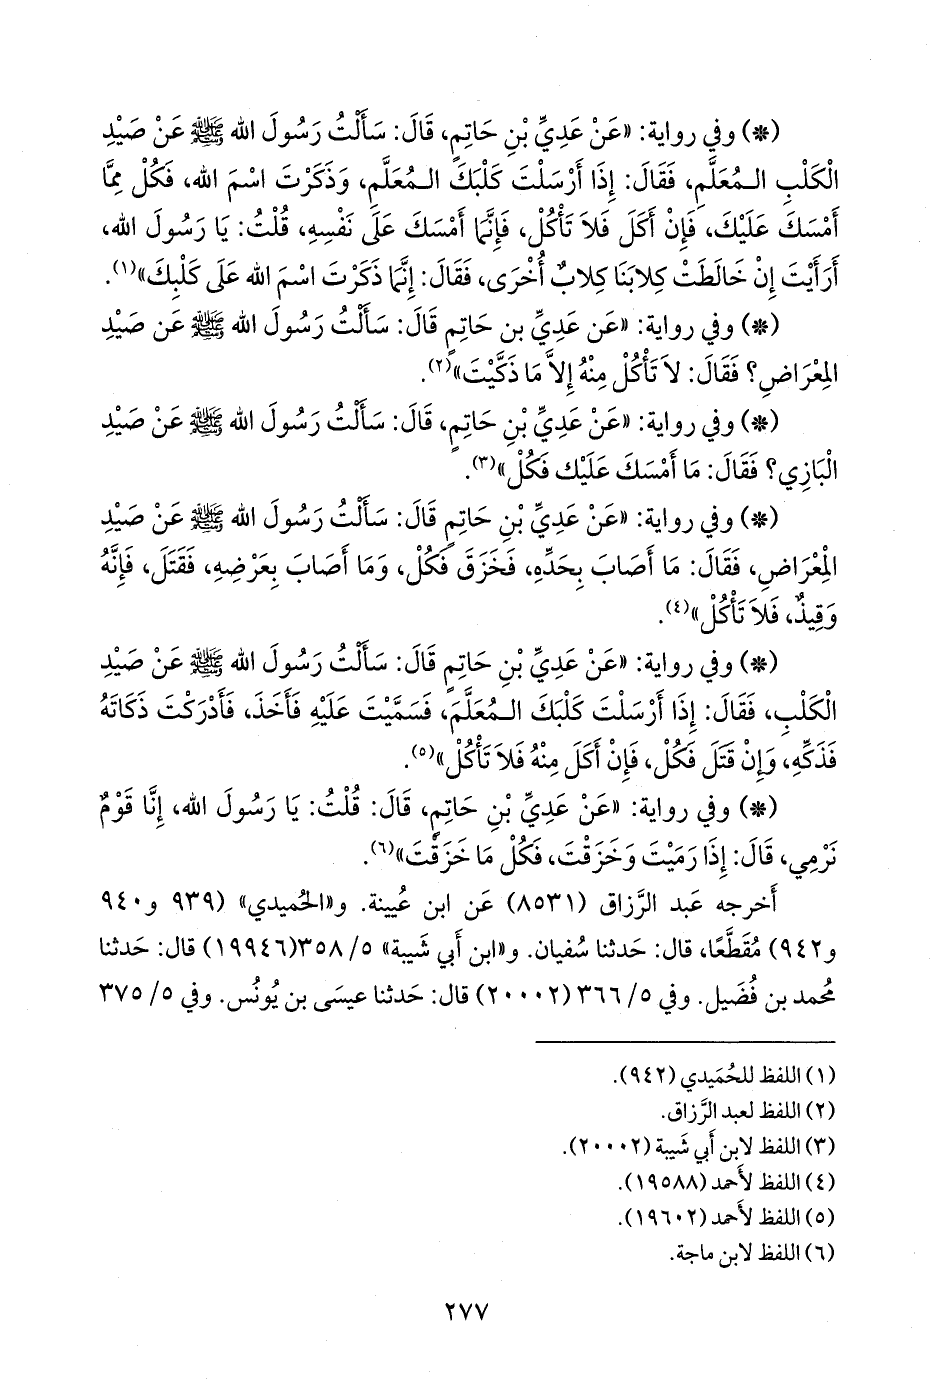 (*) وفي رواية: «عَنْ عَدِيِّ بْنِ حَاتِمٍ، قَالَ: سَأَلْتُ رَسُولَ الله ﷺ عَنْ صَيْدِ
الْكَلْبِ الـمُعَلَّمِ، فَقَالَ: إِذَا أَرْسَلْتَ كَلْبَكَ الـمُعَلَّمِ، وَذَكَرْتَ اسْمَ الله، فَكُلْ مِمَّا
أَمْسَكَ عَلَيْكَ، فَإِنْ أَكَلَ فَلاَ تَأْكُلْ، فَإِنَّمَا أَمْسَكَ عَلَى نَفْسِهِ، قُلْتُ: يَا رَسُولَ الله،
أَرَأَيْتَ إِنْ خَالَطَتْ كِلابَنَا كِلابٌ أُخْرَى، فَقَالَ: إِنَّمَا ذَكَرْتَ اسْمَ الله عَلَى كَلْبِكَ»(١).
(*) وفي رواية: «عَن عَدِيِّ بن حَاتِمٍ قَالَ: سَأَلْتُ رَسُولَ الله ﷺ عَن صَيْدِ
المِعْرَاضِ؟ فَقَالَ: لاَ تَأْكُلْ مِنْهُ إِلاَّ مَا ذَكَّيْتَ»(٢).
(*) وفي رواية: «عَنْ عَدِيِّ بْنِ حَاتِمٍ، قَالَ: سَأَلْتُ رَسُولَ الله ﷺ عَنْ صَيْدِ
الْبَازِي؟ فَقَالَ: مَا أَمْسَكَ عَلَيْك فَكُلْ»(٣).
(*) وفي رواية: «عَنْ عَدِيِّ بْنِ حَاتِمٍ قَالَ: سَأَلْتُ رَسُولَ الله ﷺ عَنْ صَيْدِ
الْمِعْرَاضِ، فَقَالَ: مَا أَصَابَ بِحَدِّهِ، فَخَزَقَ فَكُلْ، وَمَا أَصَابَ بِعَرْضِهِ، فَقَتَلَ، فَإِنَّهُ
وَقِيذٌ، فَلاَ تَأْكُلْ»(٤).
(*) وفي رواية: «عَنْ عَدِيِّ بْنِ حَاتِمٍ قَالَ: سَأَلْتُ رَسُولَ الله ﷺ عَنْ صَيْدِ
الْكَلْبِ، فَقَالَ: إِذَا أَرْسَلْتَ كَلْبَكَ الـمُعَلَّمَ، فَسَمَّيْتَ عَلَيْهِ فَأَخَذَ، فَأَدْرَكْتَ ذَكَاتَهُ
فَذَكِّهِ، وَإِنْ قَتَلَ فَكُلْ، فَإِنْ أَكَلَ مِنْهُ فَلاَ تَأْكُلْ»(٥).
(*) وفي رواية: «عَنْ عَدِيِّ بْنِ حَاتِمٍ، قَالَ: قُلْتُ: يَا رَسُولَ الله، إِنَّا قَوْمٌ
نَرْمِي، قَالَ: إِذَا رَمَيْتَ وَخَزَقْتَ، فَكُلْ مَا خَزَقْتَ»(٦).
أَخرجه عَبد الرَّزاق (٨٥٣١) عَن ابن عُيينة. و«الحُميدي» (٩٣٩ و٩٤٠
و٩٤٢) مُقَطَّعًا، قال: حَدثنا سُفيان. و«ابن أَبي شَيبة» ٥/ ٣٥٨(١٩٩٤٦) قال: حَدثنا
مُحمد بن فُضَيل. وفي ٥/ ٣٦٦ (٢٠٠٠٢) قال: حَدثنا عيسَى بن يُونُس. وفي ٥/ ٣٧٥
(١) اللفظ للحُمَيدي (٩٤٢).
(٢) اللفظ لعبد الرَّزاق.
(٣) اللفظ لابن أَبي شَيبة (٢٠٠٠٢).
(٤) اللفظ لأَحمد (١٩٥٨٨).
(٥) اللفظ لأَحمد (١٩٦٠٢).
(٦) اللفظ لابن ماجة.
٢٧٧